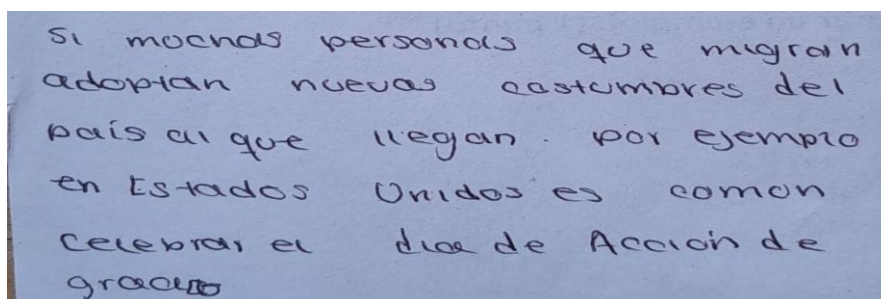 Si muchas personas que migran
adoptan nuevas costumbres del
país al que llegan. por ejemplo
en Estados Unidos es comun
celebrar el dia de Acción de
gracias